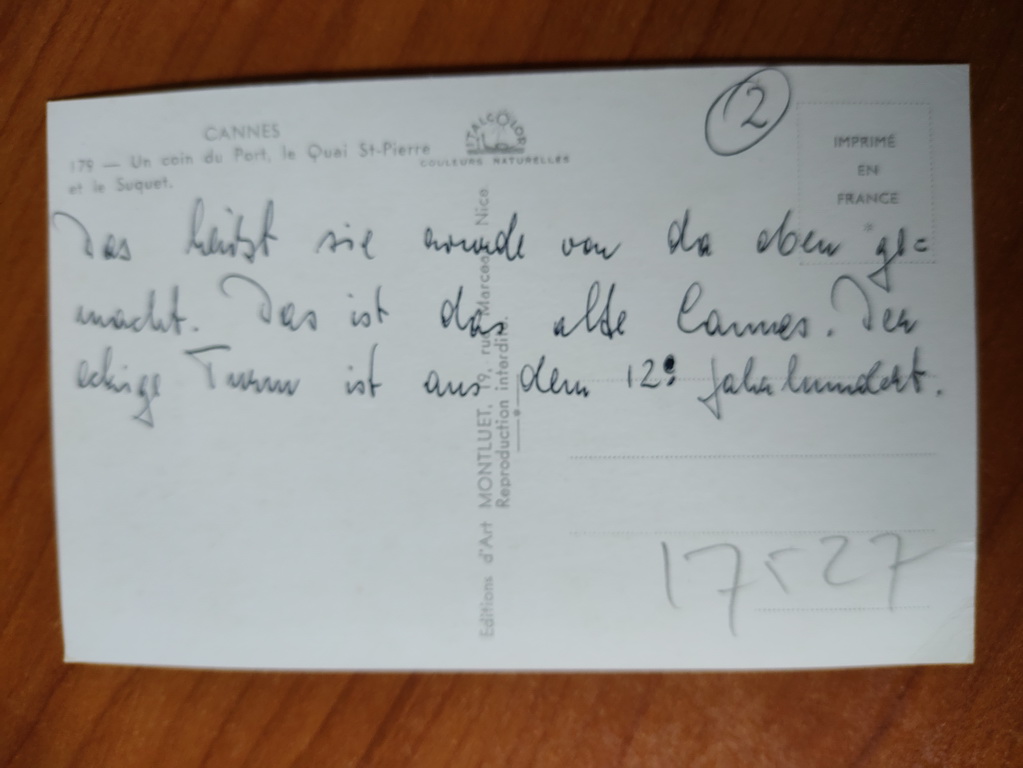 CANNES
179 — Un coin du Port, le Quai St-Pierre
et le Suquet.
ITALCOLOR
COULEURS NATURELLES
2
IMPRIMÉ
EN
FRANCE
Das heißt sie wurde von da oben ge=
macht. Das ist das alte Cannes. Der
eckige Turm ist aus dem 12. Jahrhundert.
Editions d'Art MONTLUET, 19, rue Marceau, Nice.
Reproduction interdite.